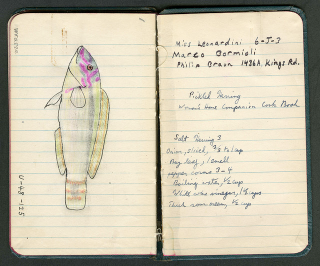 U-48-125
Miss Leonardini 6-5-3
Marco Bormioli
Philip Braun 1486A Kings Rd.
Pickled Herring
Woman's Home Companion Cook Book
Salt Herring 3
Onion, sliced, 2/3 cup
Bay leaf, 1 small
pepper corns 3-4
Boiling water, 1/2 cup
White wine vinegar, 1 1/2 cups
Thick sour cream, 1/2 cup